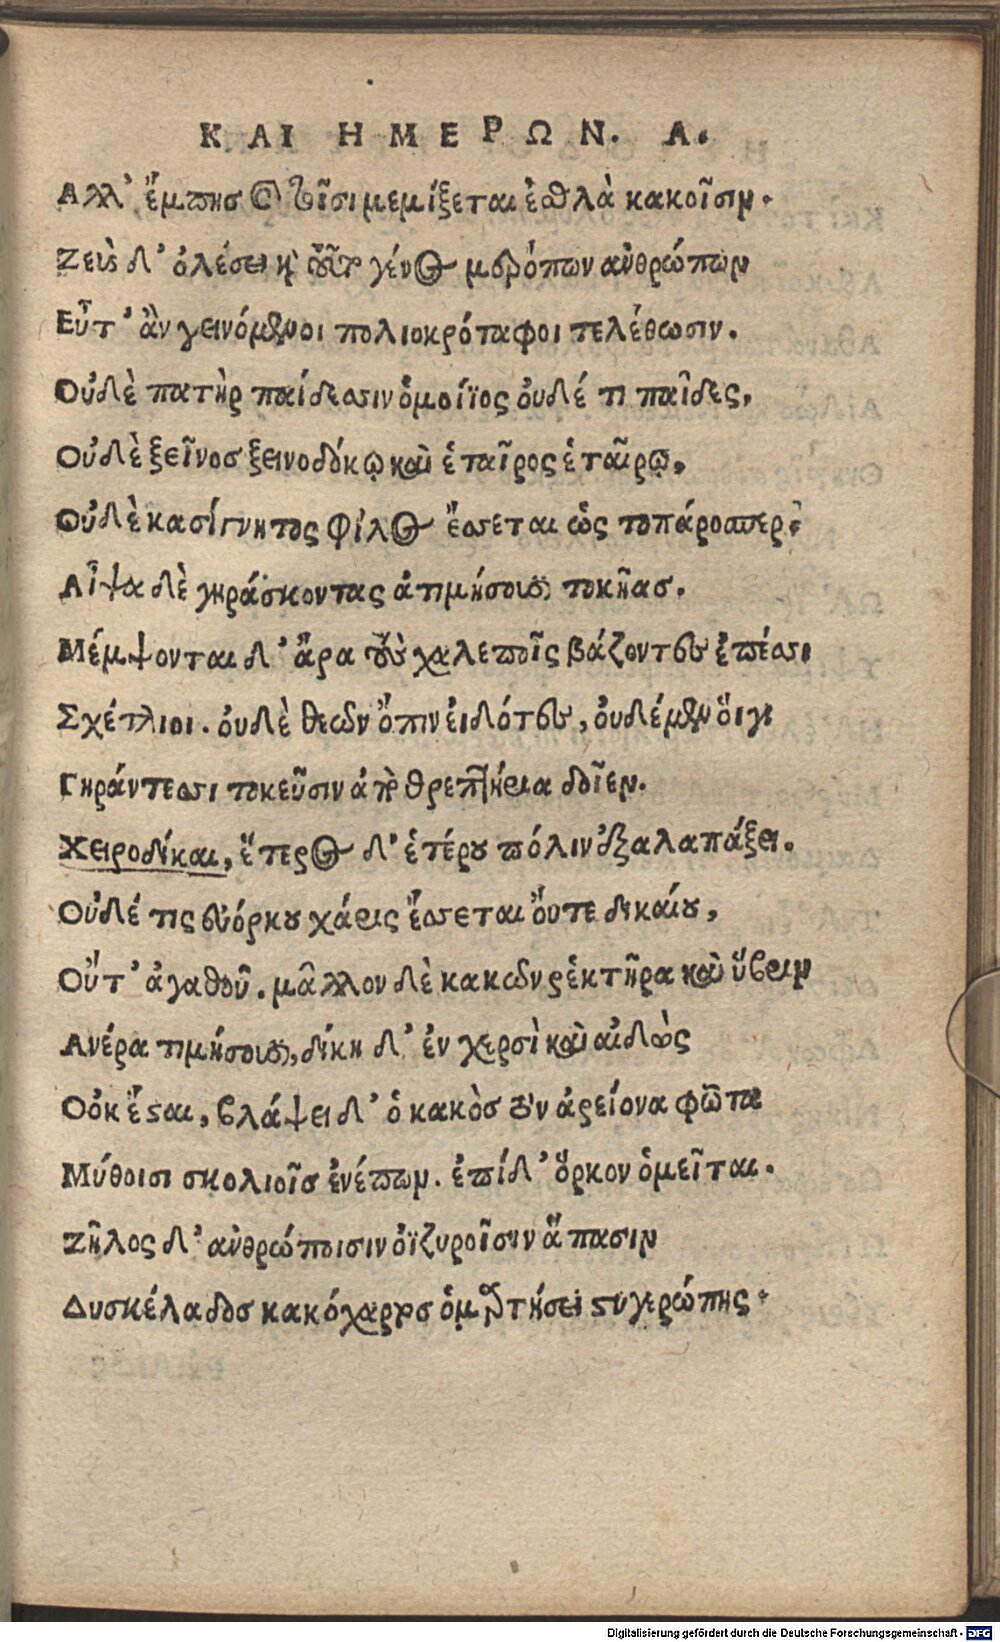 ΚΑΙ ΗΜΕΡΩΝ. Α.
Αλλ' ἔμπης καὶ τοῖσι μεμίξεται ἐσθλὰ κακοῖσιν.
Ζεὺς δ' ὀλέσει καὶ τοῦτο γένος μερόπων ἀνθρώπων
Εὖτ' ἂν γεινόμενοι πολιοκρόταφοι τελέθωσιν.
Οὐδὲ πατὴρ παίδεσσιν ὁμοίϊος ὀυδέ τι παῖδες,
Οὐδὲ ξεῖνος ξεινοδόκῳ καὶ ἑταῖρος ἑταίρῳ,
Οὐδὲ κασίγνητος φίλος ἔσσεται ὡς τοπάροσπερ.
Αἶψα δὲ γηράσκοντας ἀτιμήσουσι τοκῆας.
Μέμψονται δ' ἄρα τοὺς χαλεποῖς βάζοντες ἐπέσσι
Σχέτλιοι. ὀυδὲ θεῶν ὄπιν ἐιδότες, ὀυδέ μὲν ὅιγε
Γηράντεσσι τοκεῦσιν ἀπὸ θρεπτήρια δοῖεν.
Χειροδίκαι, ἕτερος δ' ἑτέρου πόλιν ἐξαλαπάξει.
Οὐδέ τις εὐόρκου χάρις ἔσσεται ὄυτε δικαίου,
Οὔτ' ἀγαθοῦ. μᾶλλον δὲ κακῶν ῥεκτῆρα καὶ ὕβριν
Ανέρα τιμήσουσι, δίκη δ' ἐν χερσὶ καὶ αἰδὼς
Οὐκ ἔσται, βλάψει δ' ὁ κακὸς τὸν ἀρείονα φῶτα
Μύθοισι σκολιοῖς ἐνέπων. ἐπί δ' ὅρκον ὁμεῖται.
Ζῆλος δ' ἀνθρώποισιν ὀϊζυροῖσιν ἅπασιν
Δυσκέλαδος κακόχαρτος ὁμαρτήσει στυγερώπης.
Digitalisierung gefördert durch die Deutsche Forschungsgemeinschaft - DFG